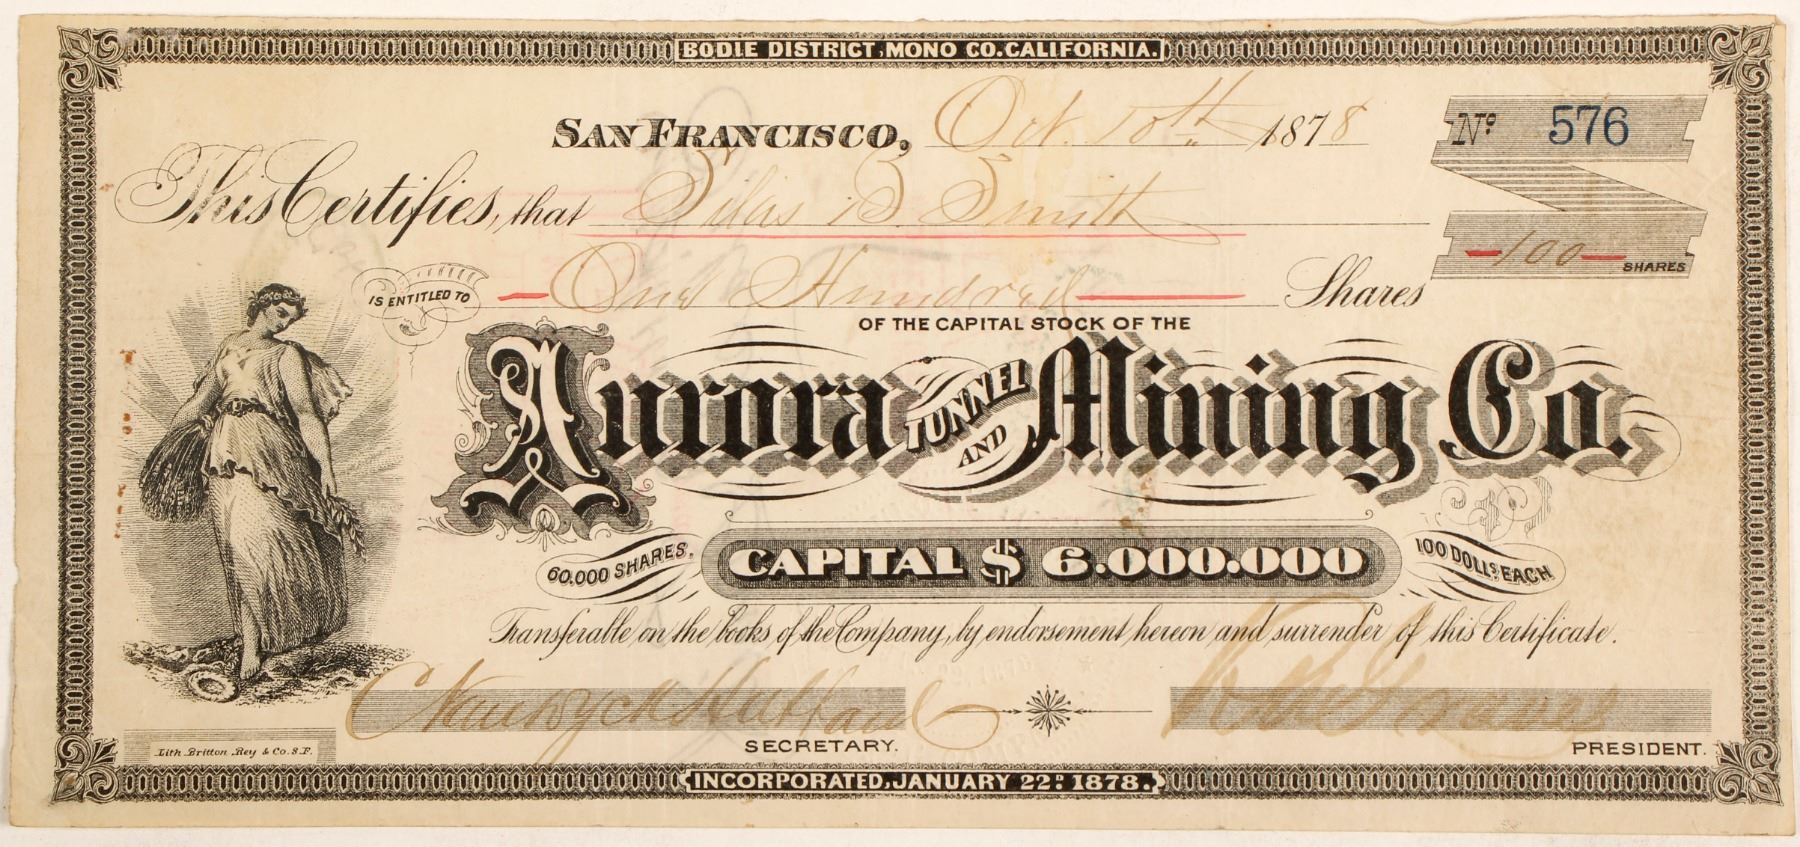 BODIE DISTRICT, MONO CO. CALIFORNIA.
SAN FRANCISCO, Oct. 10th 1878
No 576
This Certifies, that Silas B Smith
—100— SHARES
IS ENTITLED TO —One Hundred— Shares
OF THE CAPITAL STOCK OF THE
Aurora TUNNEL AND Mining Co.
60.000 SHARES. CAPITAL $ 6.000.000 100 DOLLS EACH
Transferable on the books of the Company, by endorsement hereon and surrender of this Certificate.
SECRETARY.
PRESIDENT.
Lith. Britton, Rey & Co. S.F.
INCORPORATED, JANUARY 22D 1878.